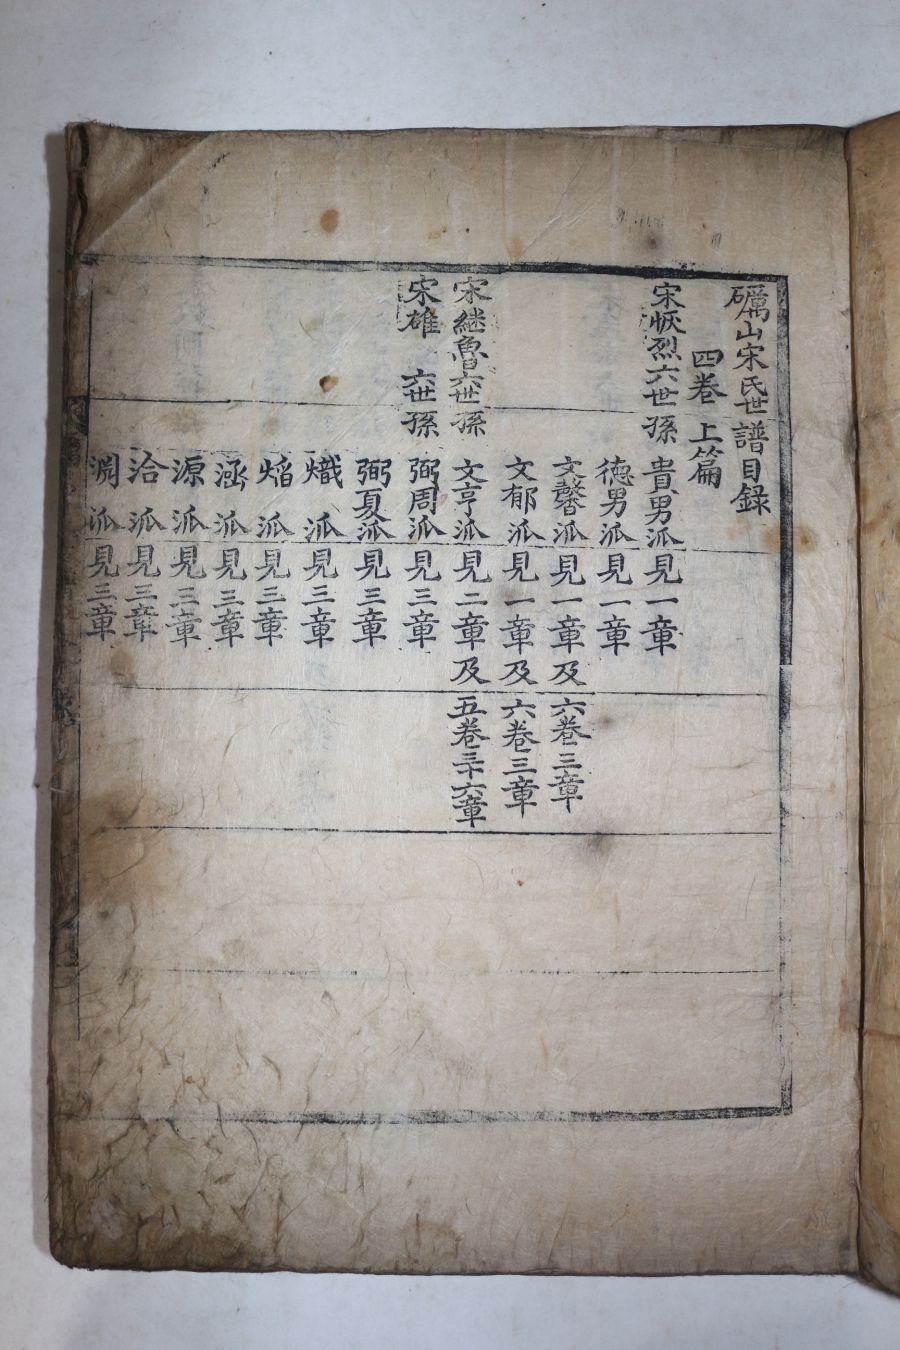 礪山宋氏世譜目録
四巻上篇
宋恢烈六世孫 貴男派 見一章
徳男派 見一章
文馨派 見一章及 六巻三章
文郁派 見一章及 六巻三章
宋継魯六世孫 文亨派 見二章及 五巻三十六章
宋雄 六世孫 弼周派 見三章
弼夏派 見三章
熾派 見三章
焰派 見三章
涵派 見三章
源派 見三章
洽派 見三章
渊派 見三章